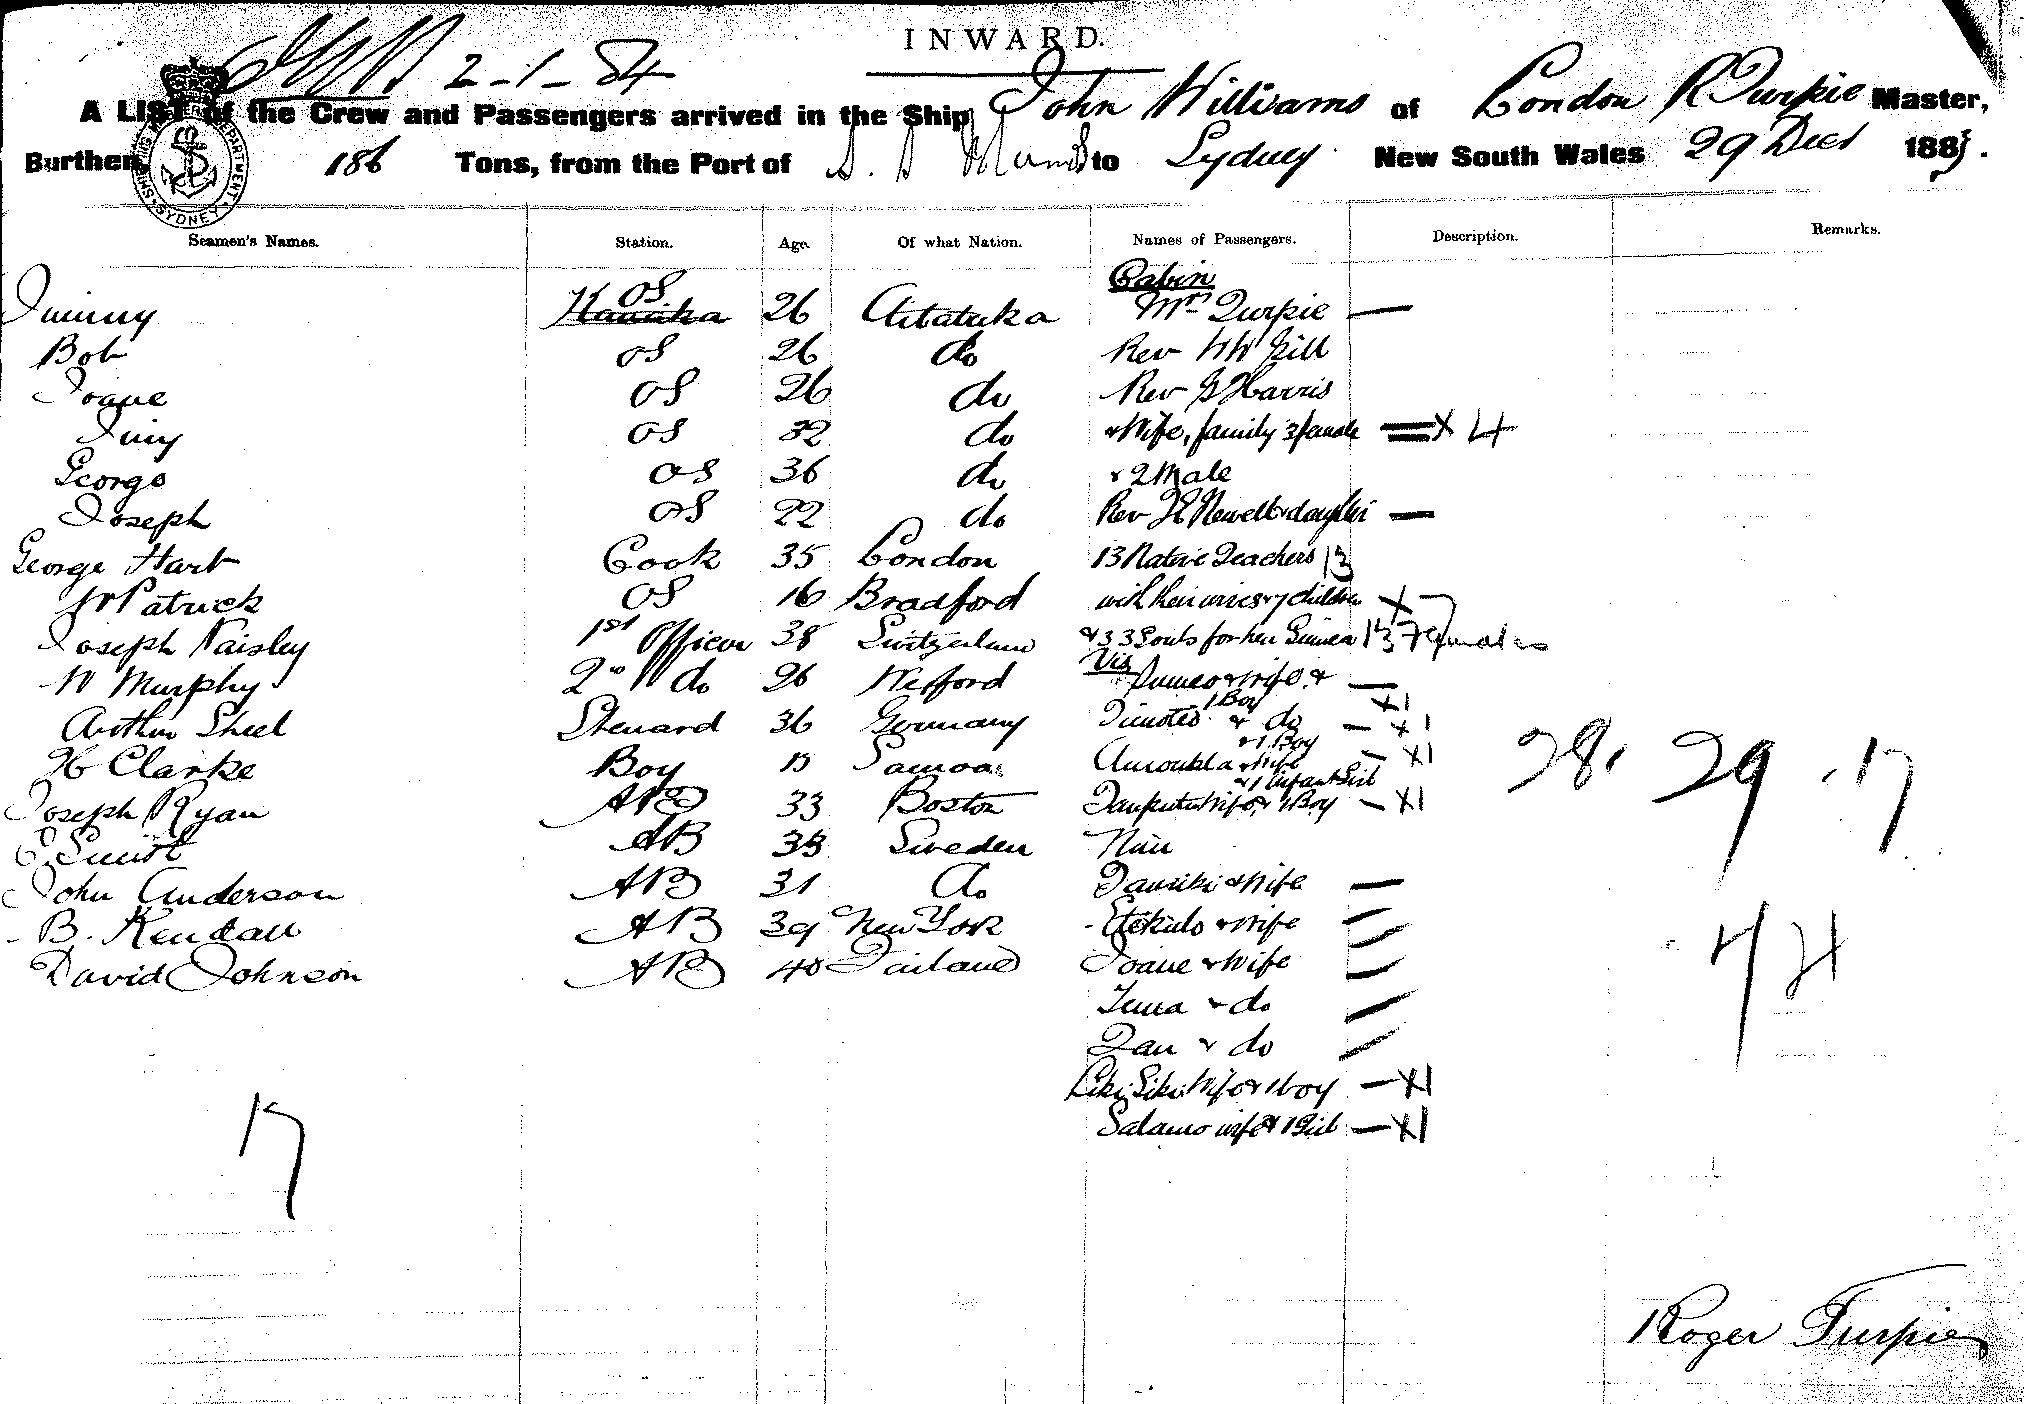 INWARD.
2-1-84
A LIST of the Crew and Passengers arrived in the Ship John Williams of London R Turpie Master,
Burthen 186 Tons, from the Port of S. S to Sydney New South Wales 29 Decr 1883.
SYDNEY
Seamen's Names. Station. Age. Of what Nation. Names of Passengers. Description. Remarks.
Cabin
Jimmy OS Kanaka 26 Aitatuka Mrs Turpie —
Bob OS 26 do Rev WW Gill
Joane OS 26 do Rev G Harris
Jimy OS 32 do & Wife, family 3 female = x 4
George OS 36 do & 2 Male
Joseph OS 22 do Rev Newell & daughter —
George Hart Cook 35 London 13 Native Teachers 13
W Patrick OS 16 Bradford with their wives & 7 children x 7
Joseph Paisley 1st Officer 38 Switzerland & 33 Souls for New Guinea 13 Females
Viz
W Murphy 2nd do 26 Wexford & wife & —
1 Boy x1
Arthur Sheel Steward 36 Germany Timoteo & do — x1
& 1 Boy
H Clarke Boy 15 Samoa & Wife — x1
& 1 infant Girl
Joseph Ryan AB 33 Boston Wife & 1 Boy — x1
28. 29. 17
AB 33 Sweden Niu
John Anderson AB 31 do & Wife —
B. Kendall AB 39 New York & Wife —
David Johnson AB 40 Joane & Wife —
74
& do —
Tau & do —
Wife & 1 boy — x1
17
Salamo wife & 1 Girl — x1
Roger Turpie